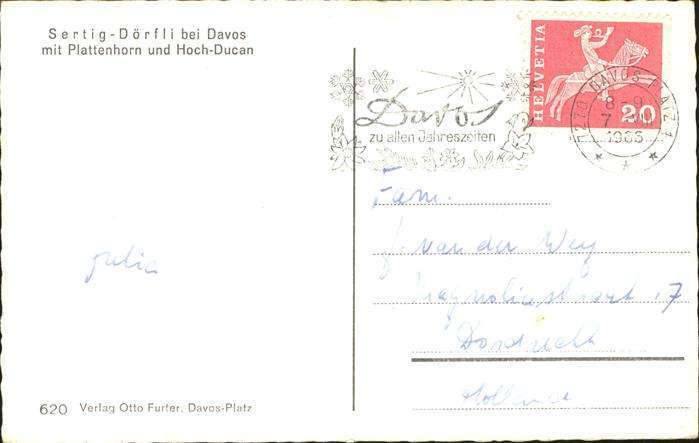 Sertig-Dörfli bei Davos
mit Plattenhorn und Hoch-Ducan
Davos
zu allen Jahreszeiten
HELVETIA
20
7270 DAVOS PLATZ 1
8-9
7
1966
Fam.
J. van der Wey
Magnoliastraat 17
Dordrecht
Holland
Julia
620 Verlag Otto Furter, Davos-Platz